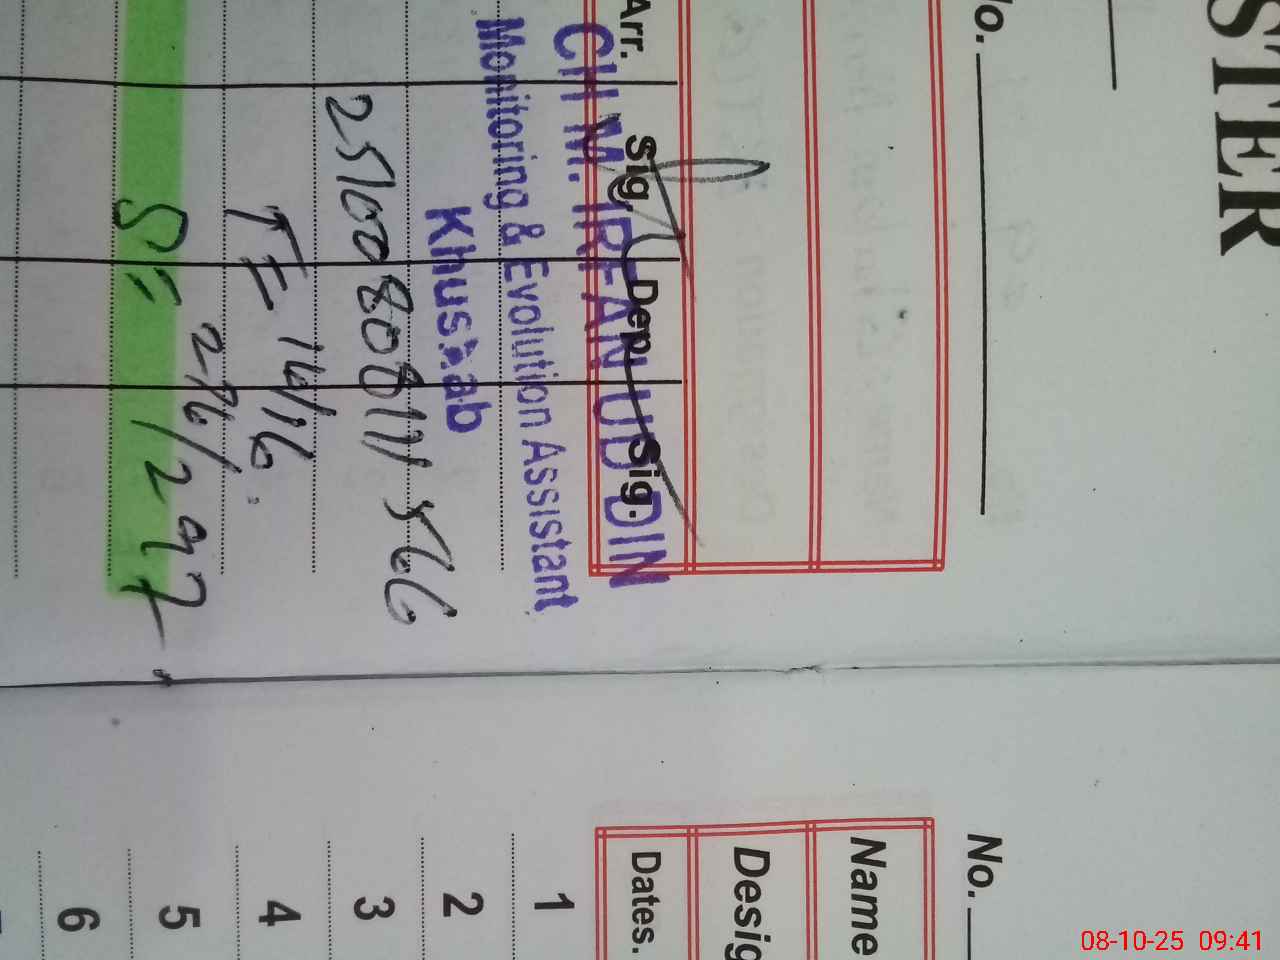 STER
No.
Arr. Sig. Dep. Sig.
CH M. IRFAN UD DIN
Monitoring & Evolution Assistant
Khushab
2510080811 566
T= 14/16
S= 276/297
No.
Name
Desig
Dates.
1
2
3
4
5
6
08-10-25 09:41